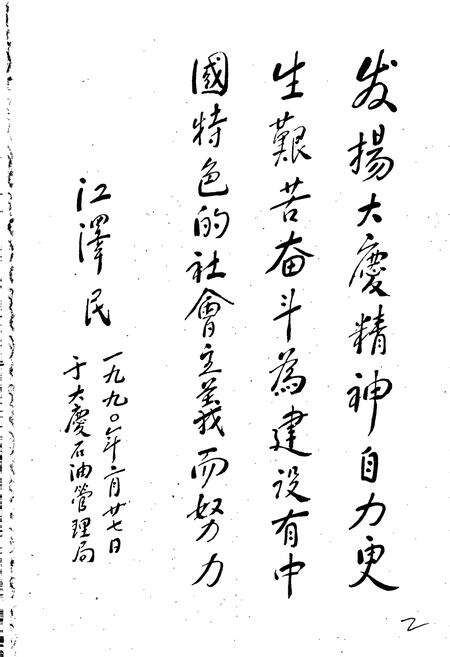 发揚大慶精神自力更
生艱苦奋斗為建设有中
國特色的社會主義而努力
江澤民
一九九〇年二月廿七日
于大慶石油管理局
2